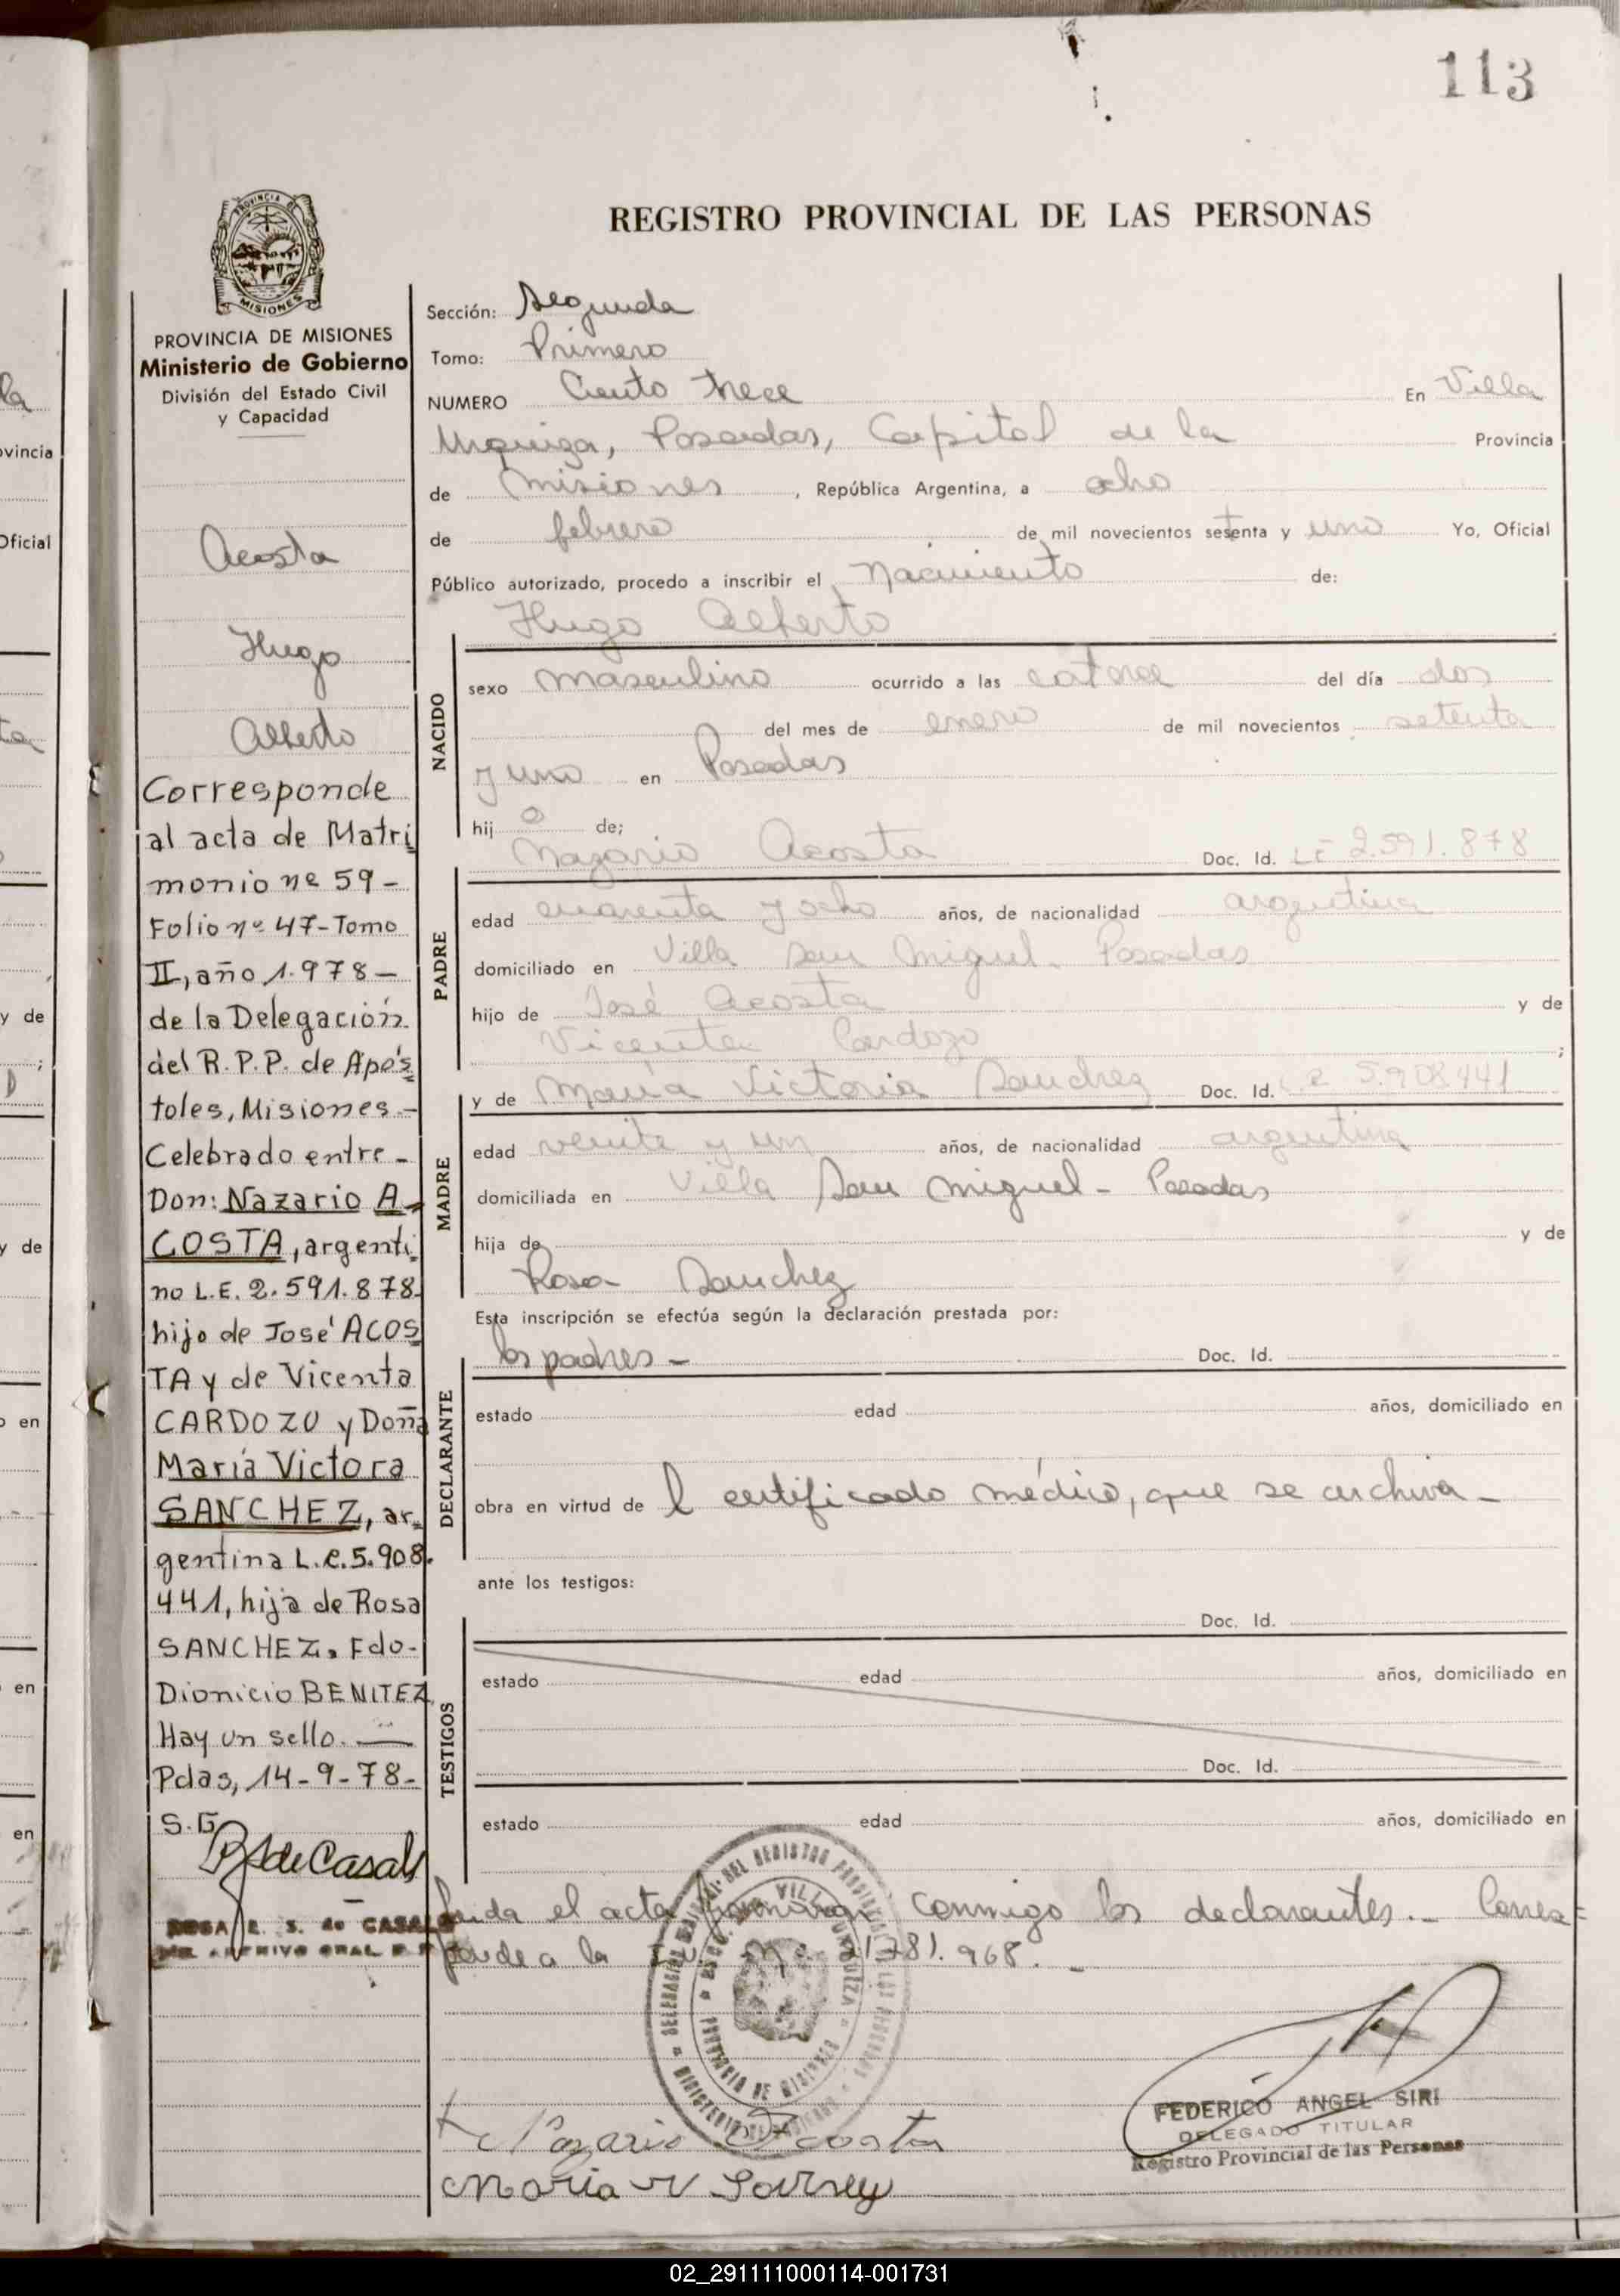 113
REGISTRO PROVINCIAL DE LAS PERSONAS
PROVINCIA DE MISIONES
Ministerio de Gobierno
División del Estado Civil
y Capacidad
Acosta
Hugo
Alberto
Corresponde
al acta de Matri
monio nº 59-
Folio nº 47-Tomo
II, año 1.978-
de la Delegación
del R.P.P. de Após
toles, Misiones.-
Celebrado entre-
Don: Nazario A-
COSTA, argenti
no L.E. 2.591.878
hijo de José ACOS
TA y de Vicenta
CARDOZO y Doña
María Victora
SANCHEZ, ar-
gentina L.C. 5.908.
441, hija de Rosa
SANCHEZ. Fdo-
Dionicio BENITEZ
Hay un sello.—
Pdas, 14-9-78-
S.G.
R S de Casals
ROSA E. S. de CASALS
Sección: Segunda
Tomo: Primero
NUMERO Ciento trece En Villa
Urquiza, Posadas, Capital de la Provincia
de Misiones, República Argentina, a ocho
de febrero de mil novecientos setenta y uno Yo, Oficial
Público autorizado, procedo a inscribir el Nacimiento de:
Hugo Alberto
NACIDO
sexo masculino ocurrido a las catorce del día dos
del mes de enero de mil novecientos setenta
y uno en Posadas
hijo de;
Nazario Acosta Doc. Id. LE 2.591.878
PADRE
edad cuarenta y ocho años, de nacionalidad argentina
domiciliado en Villa San Miguel- Posadas
hijo de José Acosta y de
Vicenta Cardozo ;
y de María Victoria Sanchez Doc. Id. L.C 5.908.441
MADRE
edad veinte y un años, de nacionalidad argentina
domiciliada en Villa San Miguel- Posadas
hija de y de
Rosa Sanchez
Esta inscripción se efectúa según la declaración prestada por:
los padres- Doc. Id.
DECLARANTE
estado edad años, domiciliado en
obra en virtud de l certificado médico, que se archiva-
ante los testigos:
Doc. Id.
TESTIGOS
estado edad años, domiciliado en
Doc. Id.
estado edad años, domiciliado en
Leida el acta firmaron conmigo los declarantes.- Corres=
ponde a la 21781.968.-
Nazario Acosta
Maria V
FEDERICO ANGEL SIRI
DELEGADO TITULAR
Registro Provincial de las Personas
02_291111000114-001731